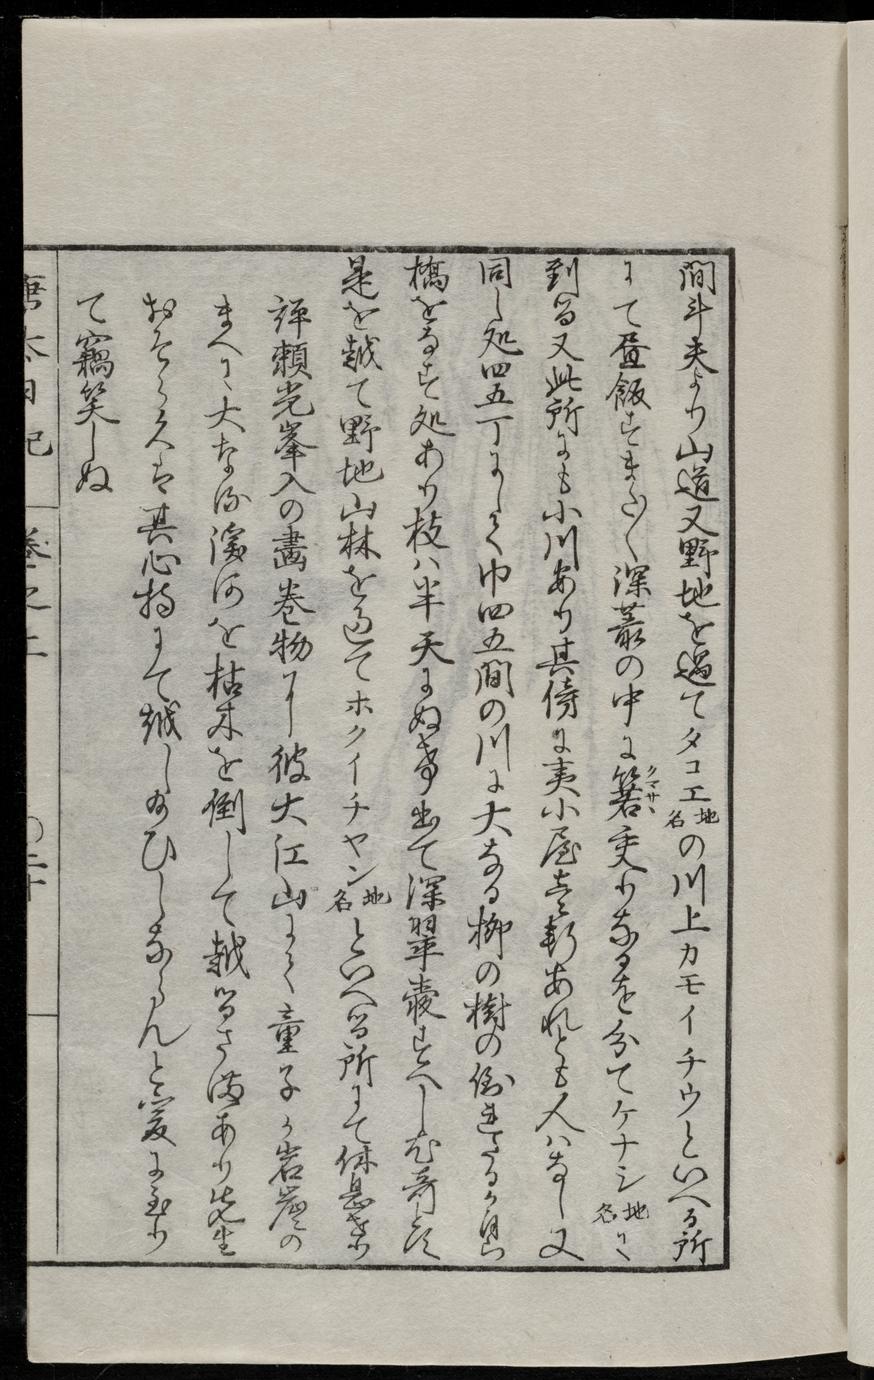 間斗夫より山道又野地を過てタコエ地名の川上カモイチウといへる所
にて昼飯をまた〳〵深叢の中に箬クマサヽ重りなるを分てケナシ地名に
到る又此所にも小川あり其傍に夷小屋壱軒あれとも人ハなし又
同し処四五丁にして巾四五間の川に大なる柳の樹の倒れたるか自ら
橋をなす処あり枝ハ半天にぬき出て深翠愛すへし
是を越て野地山林を過てホクイチヤン地名といへる所にて休息せり
譯頼光峯入の畵巻物に彼大江山にて童子か岩窟の
まへに大なる溪河を枯木を倒して越るさまあり先生
おそらくは其心持にて越し給ひしならんと爰に至り
て竊笑しぬ
唐太日記 巻之上 〇二十